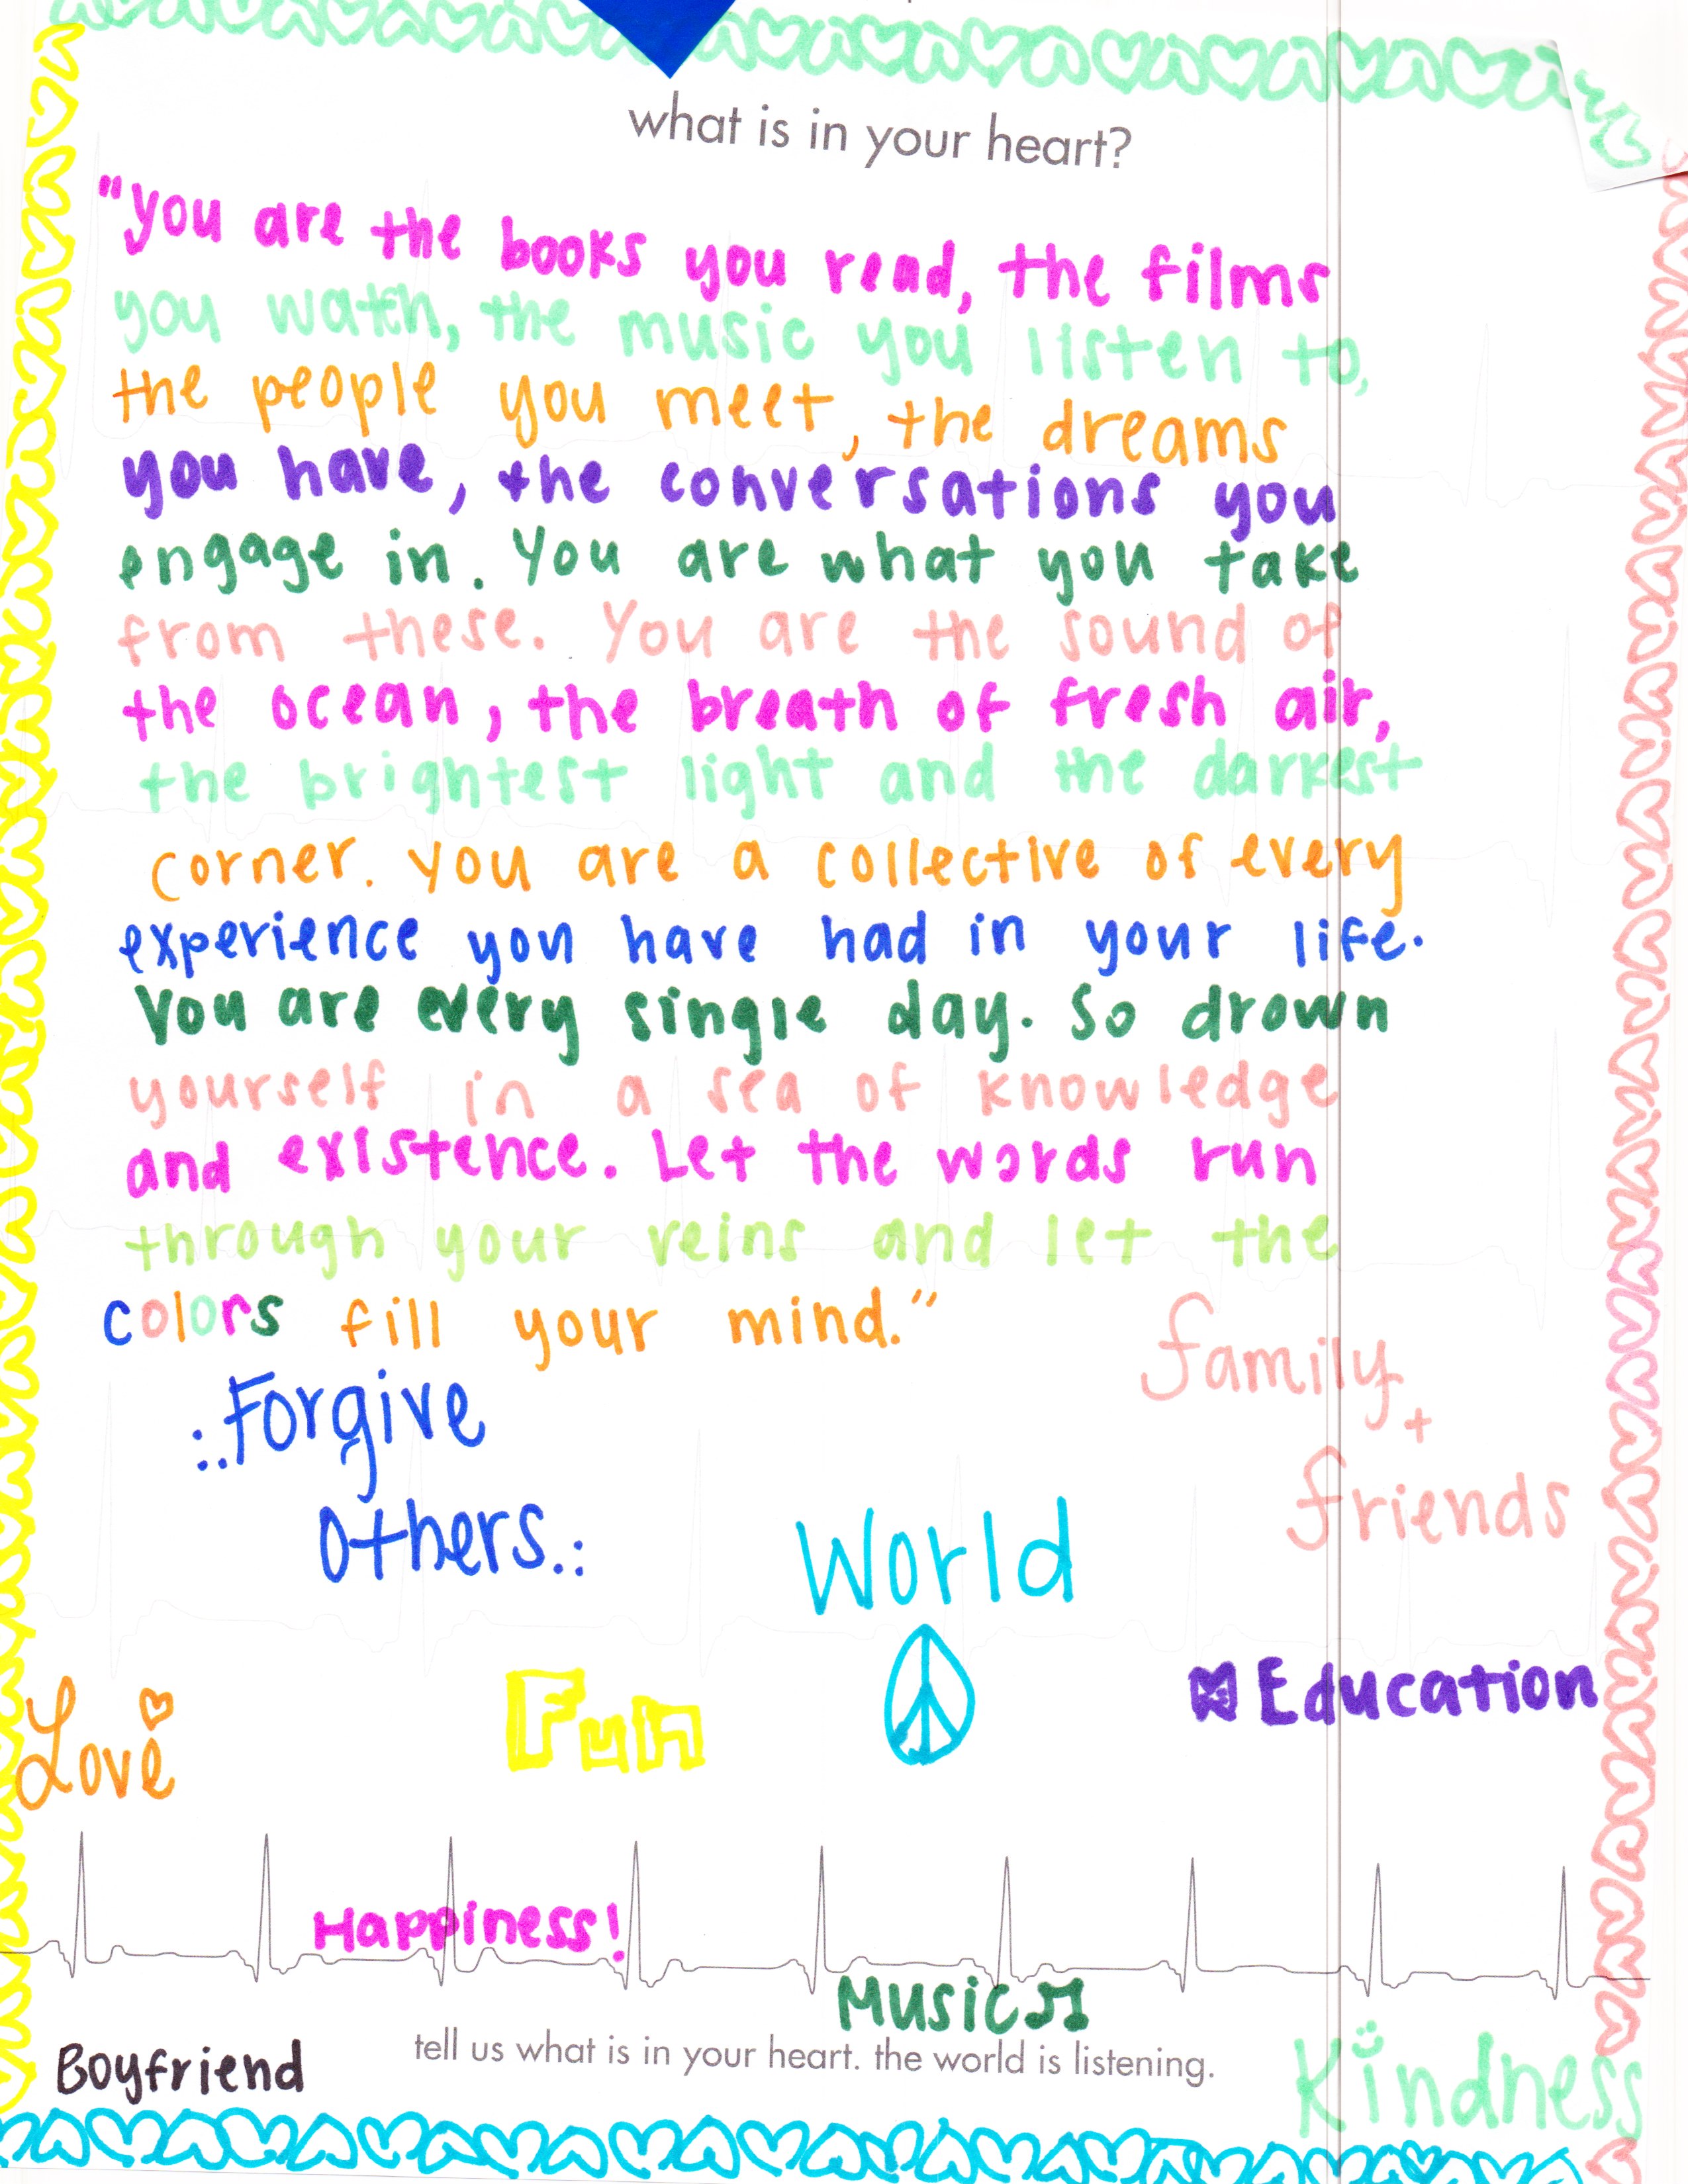 what is in your heart?
"you are the books you read, the films
you watch, the music you listen to,
the people you meet, the dreams
you have, the conversations you
engage in. You are what you take
from these. You are the sound of
the ocean, the breath of fresh air,
the brightest light and the darkest
corner. you are a collective of every
experience you have had in your life.
You are every single day. So drown
yourself in a sea of knowledge
and existence. Let the words run
through your veins and let the
colors fill your mind."
family
+
friends
Forgive
Others
World
Education
Love
Fun
Happiness!
Music
tell us what is in your heart. the world is listening.
Boyfriend
Kindness